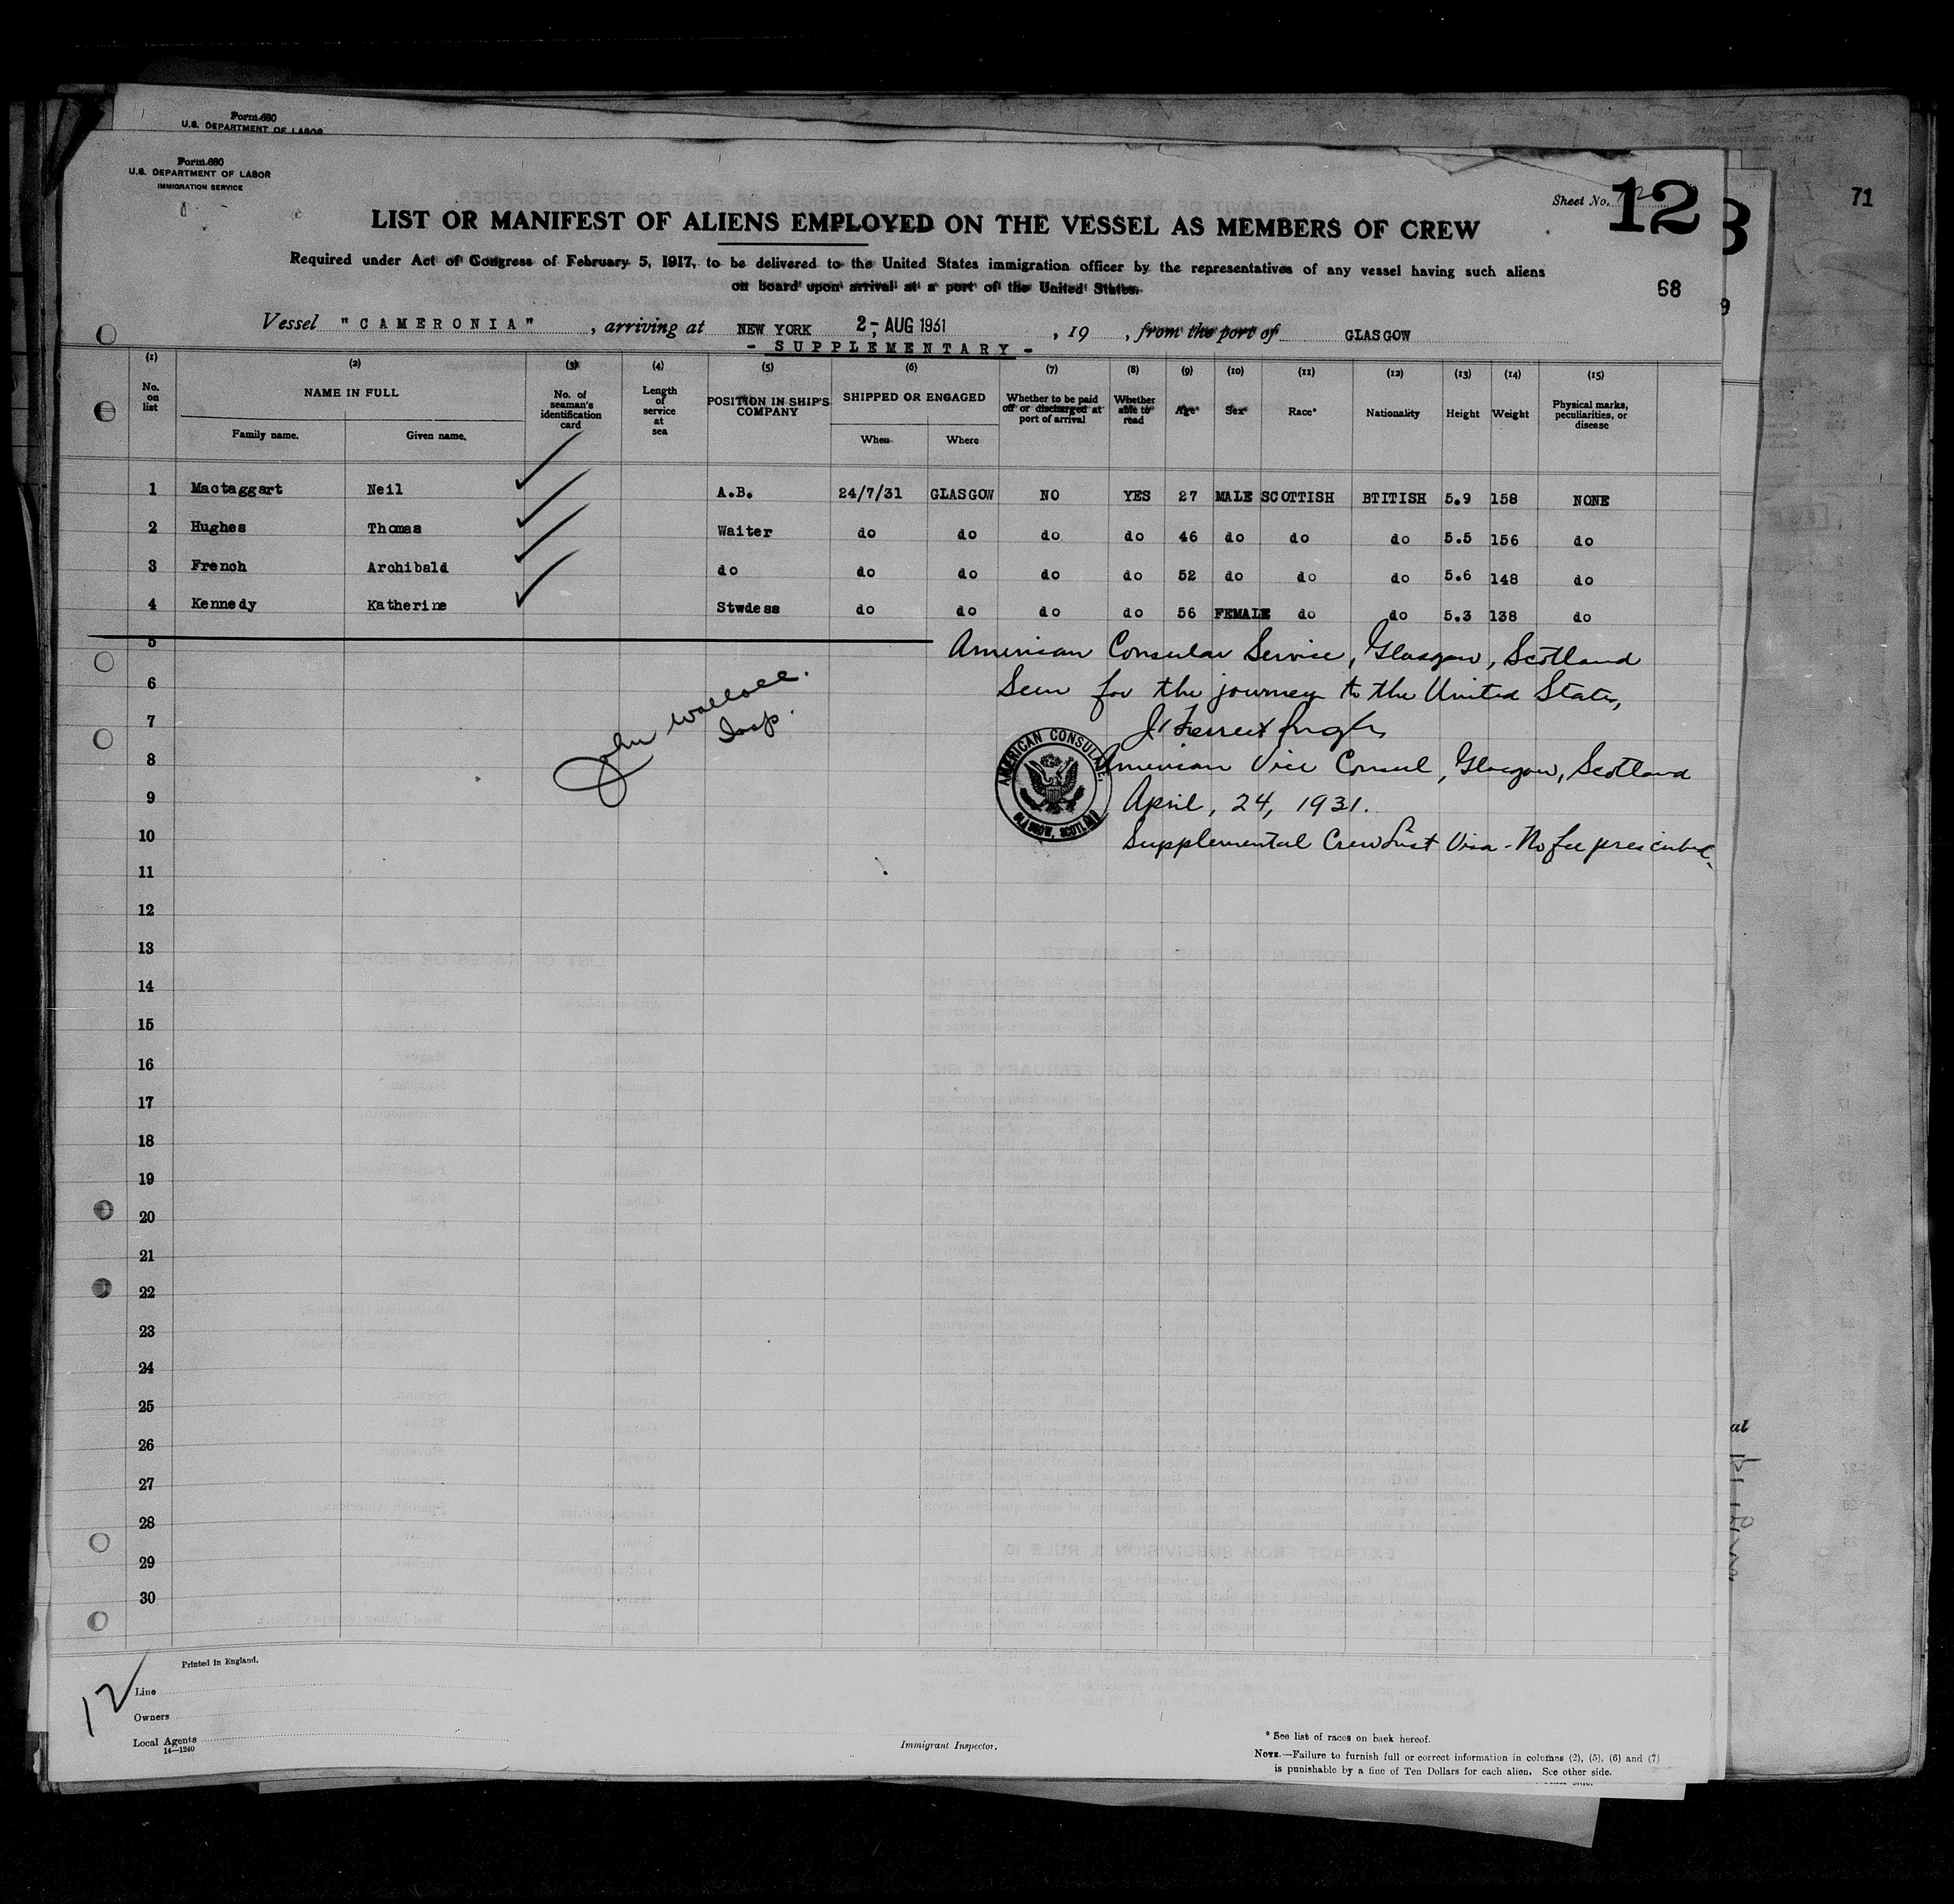 Form 680
U.S. DEPARTMENT OF LABOR
Form 680
U.S. DEPARTMENT OF LABOR
IMMIGRATION SERVICE
Sheet No. 12
12
71
LIST OR MANIFEST OF ALIENS EMPLOYED ON THE VESSEL AS MEMBERS OF CREW
Required under Act of Congress of February 5, 1917, to be delivered to the United States immigration officer by the representatives of any vessel having such aliens
on board upon arrival at a port of the United States.
68
Vessel "CAMERONIA", arriving at NEW YORK 2- AUG 1931, 19 , from the port of GLASGOW
- SUPPLEMENTARY -
(1) (2) (3) (4) (5) (6) (7) (8) (9) (10) (11) (12) (13) (14) (15)
No. on list NAME IN FULL Family name. Given name. No. of seaman's identification card Length of service at sea POSITION IN SHIP'S COMPANY SHIPPED OR ENGAGED When Where Whether to be paid off or discharged at port of arrival Whether able to read Age Sex Race* Nationality Height Weight Physical marks, peculiarities, or disease
1 Mactaggart Neil A.B. 24/7/31 GLASGOW NO YES 27 MALE SCOTTISH BTITISH 5.9 158 NONE
2 Hughes Thomas Waiter do do do do 46 do do do 5.5 156 do
3 French Archibald do do do do do 52 do do do 5.6 148 do
4 Kennedy Katherine Stwdess do do do do 56 FEMALE do do 5.3 138 do
5
American Consular Service, Glasgow, Scotland
6
Seen for the journey to the United States,
John Wallace.
Insp.
7
8
American Vice Consul, Glasgow, Scotland
AMERICAN CONSULATE,
GLASGOW, SCOTLAND
9
April, 24, 1931.
10
Supplemental Crew List Visa - No fee prescribed.
11
12
13
14
15
16
17
18
19
20
21
22
23
24
25
26
27
28
29
30
Printed in England.
12
Line
Owners
Local Agents
14-1240
Immigrant Inspector.
* See list of races on back hereof.
NOTE.—Failure to furnish full or correct information in columns (2), (5), (6) and (7)
is punishable by a fine of Ten Dollars for each alien. See other side.